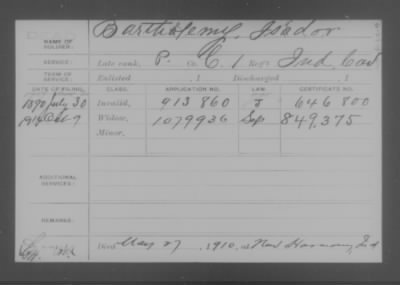 NAME OF SOLDIER: Barthelemy, Isador
SERVICE: Late rank, P. Co. C, 1 Reg't Ind. Cav
TERM OF SERVICE: Enlisted , 1 Discharged , 1
DATE OF FILING. CLASS. APPLICATION NO. LAW. CERTIFICATE NO.
1890 July 30 Invalid, 913 860 J 646 800
Widow, 1079936 849,375
Minor,
ADDITIONAL SERVICES:
REMARKS:
Died May 27, 1910, at New Harmony, Ind